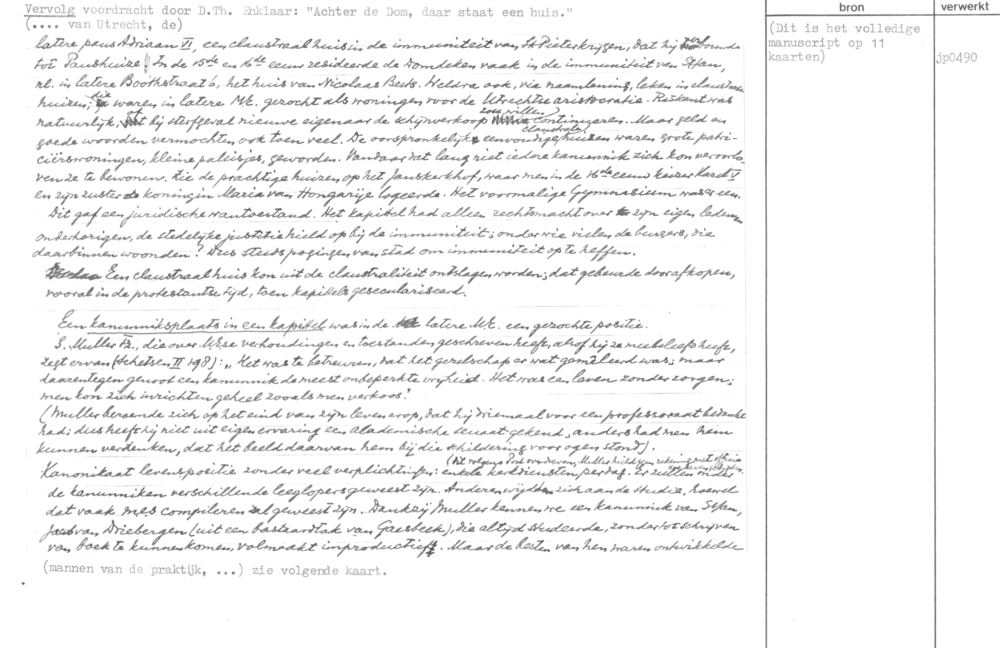 Vervolg voordracht door D.Th. Enklaar: "Achter de Dom, daar staat een huis."
(.... van Utrecht, de)
bron
verwerkt
(Dit is het volledige
manuscript op 11
kaarten)
jp0490
latere paus Adriaan VI, een claustraal huis in de immuniteit van St Pieter krijgen, dat hij verbouwde
tot Paushuize! In de 15de en 16de eeuw resideerde de Domdeken vaak in de immuniteit van St Jan,
nl. in latere Boothstraat 6, het huis van Nicolaas Beets. Weldra ook, via naamlening, leken in claustrale
huizen; die waren in latere ME. gezocht als woningen voor de Utrechtse aristocratie. Riskant was
natuurlijk, of bij sterfgeval nieuwe eigenaar de schijnverkoop zou willen continueren. Maar geld en
goede woorden vermochten ook toen veel. De oorspronkelijk eenvoudige claustrale huizen waren grote patri-
ciërswoningen, kleine paleisjes, geworden. Vandaar dat lang niet iedere kanunnik zich kon veroorlo-
ven ze te bewonen. Zie de prachtige huizen op het Janskerkhof, waar men in de 16de eeuw keizer Karel V
en zijn zuster de koningin Maria van Hongarije logeerde. Het voormalige Gymnasium was er een.
Dit gaf een juridische wantoestand. Het kapittel had alleen rechtsmacht over zijn eigen leden en
onderhorigen, de stedelijke justitie hield op bij de immuniteit; onder wie vielen de burgers, die
daarbinnen woonden? Dus steeds pogingen van stad om immuniteit op te heffen.
Een claustraal huis kon uit de claustraliteit ontslagen worden; dat gebeurde door afkopen,
vooral in de protestantse tijd, toen kapittels geseculariseerd.
Een kanunniksplaats in een kapittel was in de latere ME. een gezochte positie.
S. Muller Fz., die over ME.se verhoudingen en toestanden geschreven heeft, alsof hij ze meebeleefd heeft,
zegt ervan (Schetsen II 198): "Het was te betreuren, dat het gezelschap er wat gemêleerd was; maar
daarentegen genoot een kanunnik de meest onbeperkte vrijheid. Het was een leven zonder zorgen;
men kon zich inrichten geheel zooals men verkoos."
(Muller beroemde zich op het eind van zijn leven erop, dat hij driemaal voor een professoraat bedankt
had; dus heeft hij niet uit eigen ervaring een academische senaat gekend, anders had men hem
kunnen verdenken, dat het beeld daarvan hem bij die schildering voor ogen stond).
Kanonikaat levenspositie zonder veel verplichtingen: enkele kerkdiensten per dag. Er zullen onder
de kanunniken verschillende leeglopers geweest zijn. Anderen wijdden zich aan de studie, hoewel
dat vaak compileren zal geweest zijn. Dankzij Muller kennen we een kanunnik van St Jan,
Jacob van Driebergen (uit een bastaardtak van Gaesbeek), die altijd studeerde, zonder tot schrijven
van boek te kunnen komen, volmaakt improductief. Maar de besten van hen waren ontwikkelde
(mannen van de praktijk, ...) zie volgende kaart.